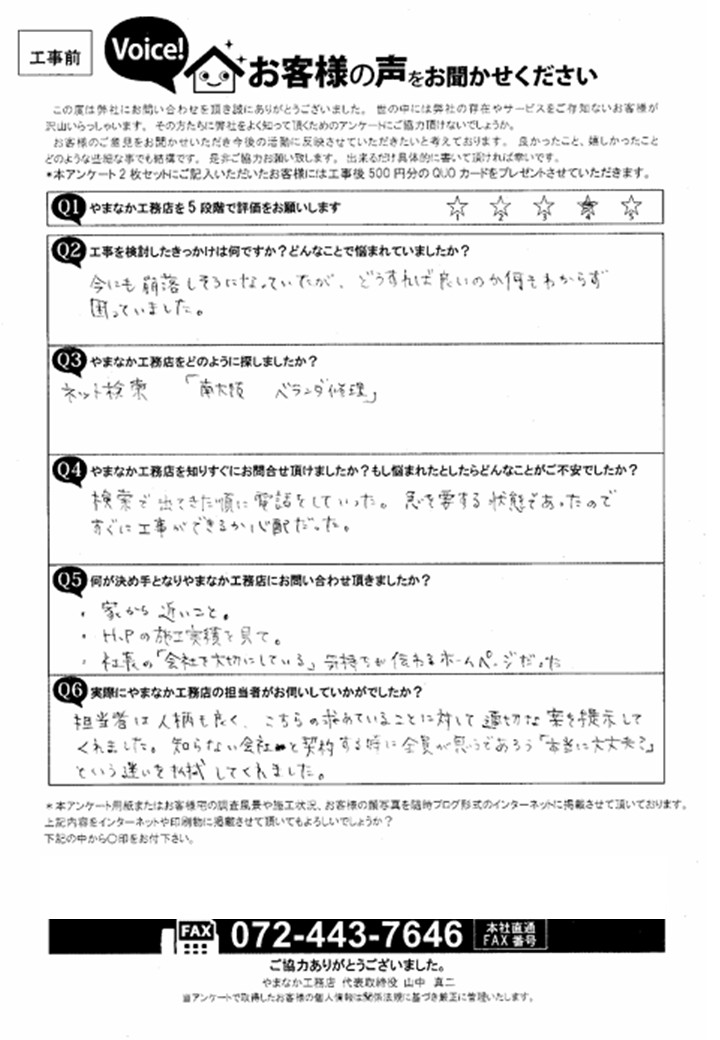 工事前
Voice!
お客様の声をお聞かせください
この度は弊社にお問い合わせを頂き誠にありがとうございました。 世の中には弊社の存在やサービスをご存知ないお客様が
沢山いらっしゃいます。 その方たちに弊社をよく知って頂くためのアンケートにご協力頂けないでしょうか。
お客様のご意見をお聞かせいただき今後の活動に反映させていただきたいと考えております。 良かったこと、嬉しかったこと
どのような些細な事でも結構です。 是非ご協力お願い致します。 出来るだけ具体的に書いて頂ければ幸いです。
*本アンケート2枚セットにご記入いただいたお客様には工事後500円分のQUOカードをプレゼントさせていただきます。
Q1 やまなか工務店を5段階で評価をお願いします
1 2 3 4 5
Q2 工事を検討したきっかけは何ですか?どんなことで悩まれていましたか?
今にも崩落しそうになっていたが、どうすれば良いのか何もわからず
困っていました。
Q3 やまなか工務店をどのように探しましたか?
ネット検索 「南大阪 ベランダ修理」
Q4 やまなか工務店を知りすぐにお問合せ頂けましたか?もし悩まれたとしたらどんなことがご不安でしたか?
検索で出てきた順に電話をしていった。 急を要する状態であったので
すぐに工事ができるか心配だった。
Q5 何が決め手となりやまなか工務店にお問い合わせ頂きましたか?
・ 家から近いこと。
・ H.Pの施工実績を見て。
・ 社長の「会社を大切にしている」気持ちが伝わるホームページだった
Q6 実際にやまなか工務店の担当者がお伺いしていかがでしたか?
担当者は人柄も良く、こちらの求めていることに対して適切な案を提示して
くれました。 知らない会社と契約する時に全員が思うであろう「本当に大丈夫?」
という迷いを払拭してくれました。
*本アンケート用紙またはお客様宅の調査風景や施工状況、お客様の顔写真を随時ブログ形式のインターネットに掲載させて頂いております。
上記内容をインターネットや印刷物に掲載させて頂いてもよろしいでしょうか?
下記の中から〇印をお付下さい。
FAX 072-443-7646 本社直通
FAX番号
ご協力ありがとうございました。
やまなか工務店 代表取締役 山中 真二
当アンケートで取得したお客様の個人情報は関係法規に基づき厳正に管理いたします。